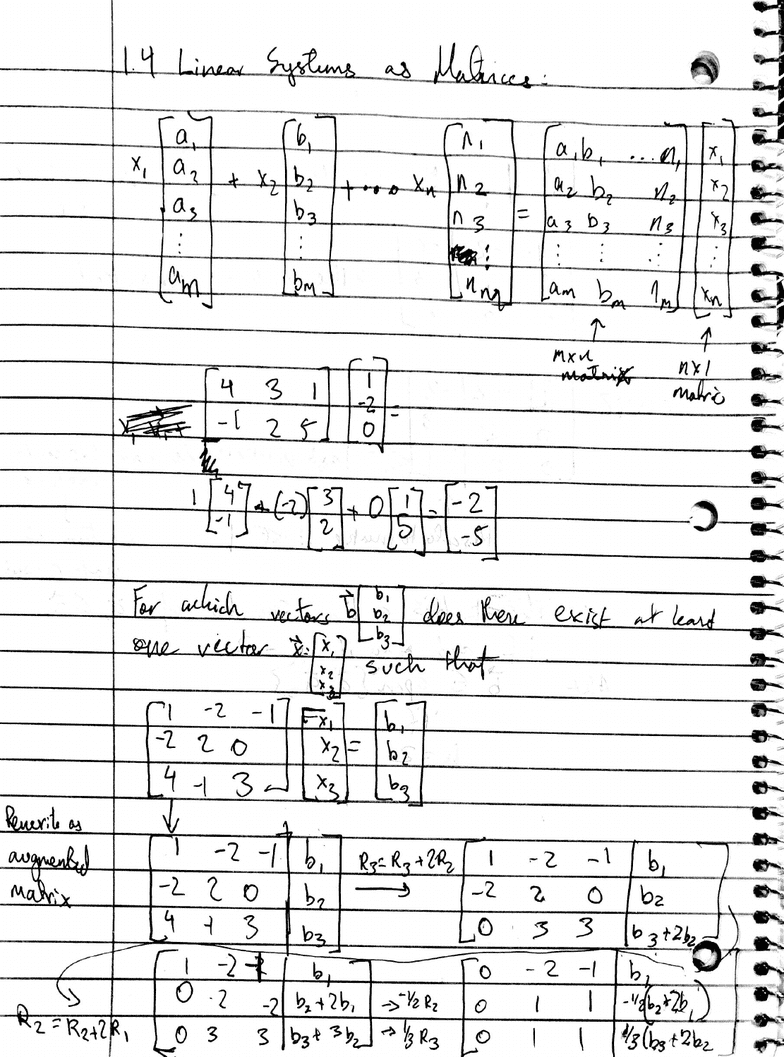 1.4 Linear Systems as Matrices:
x₁ [a₁ a₂ a₃ ⋮ am] + x₂ [b₁ b₂ b₃ ⋮ bm] + ... xn [n₁ n₂ n₃ ⋮ nm] = [a₁ b₁ ... n₁; a₂ b₂ n₂; a₃ b₃ n₃; ⋮ ⋮ ⋮; am bm nm] [x₁ x₂ x₃ ⋮ xn]
↑ m×n matrix ↑ n×1 matrix
[4 3 1; -1 2 5] [1; -2; 0] =
1 [4; -1] + (-2) [3; 2] + 0 [1; 5] = [-2; -5]
For which vectors b⃗ [b₁ b₂ b₃] does there exist at least
one vector x⃗: [x₁ x₂ x₃] such that
[1 -2 -1; -2 2 0; 4 -1 3] [x₁; x₂; x₃] = [b₁; b₂; b₃]
↓
Rewrite as
augmented
matrix
[1 -2 -1 | b₁; -2 2 0 | b₂; 4 -1 3 | b₃] R₃=R₃+2R₂ → [1 -2 -1 | b₁; -2 2 0 | b₂; 0 3 3 | b₃+2b₂]
R₂=R₂+2R₁ [1 -2 -1 | b₁; 0 -2 -2 | b₂+2b₁; 0 3 3 | b₃+3b₂] → -1/2 R₂ → 1/3 R₃ [0 -2 -1 | b₁; 0 1 1 | -1/2(b₂+2b₁); 0 1 1 | 1/3(b₃+2b₂]